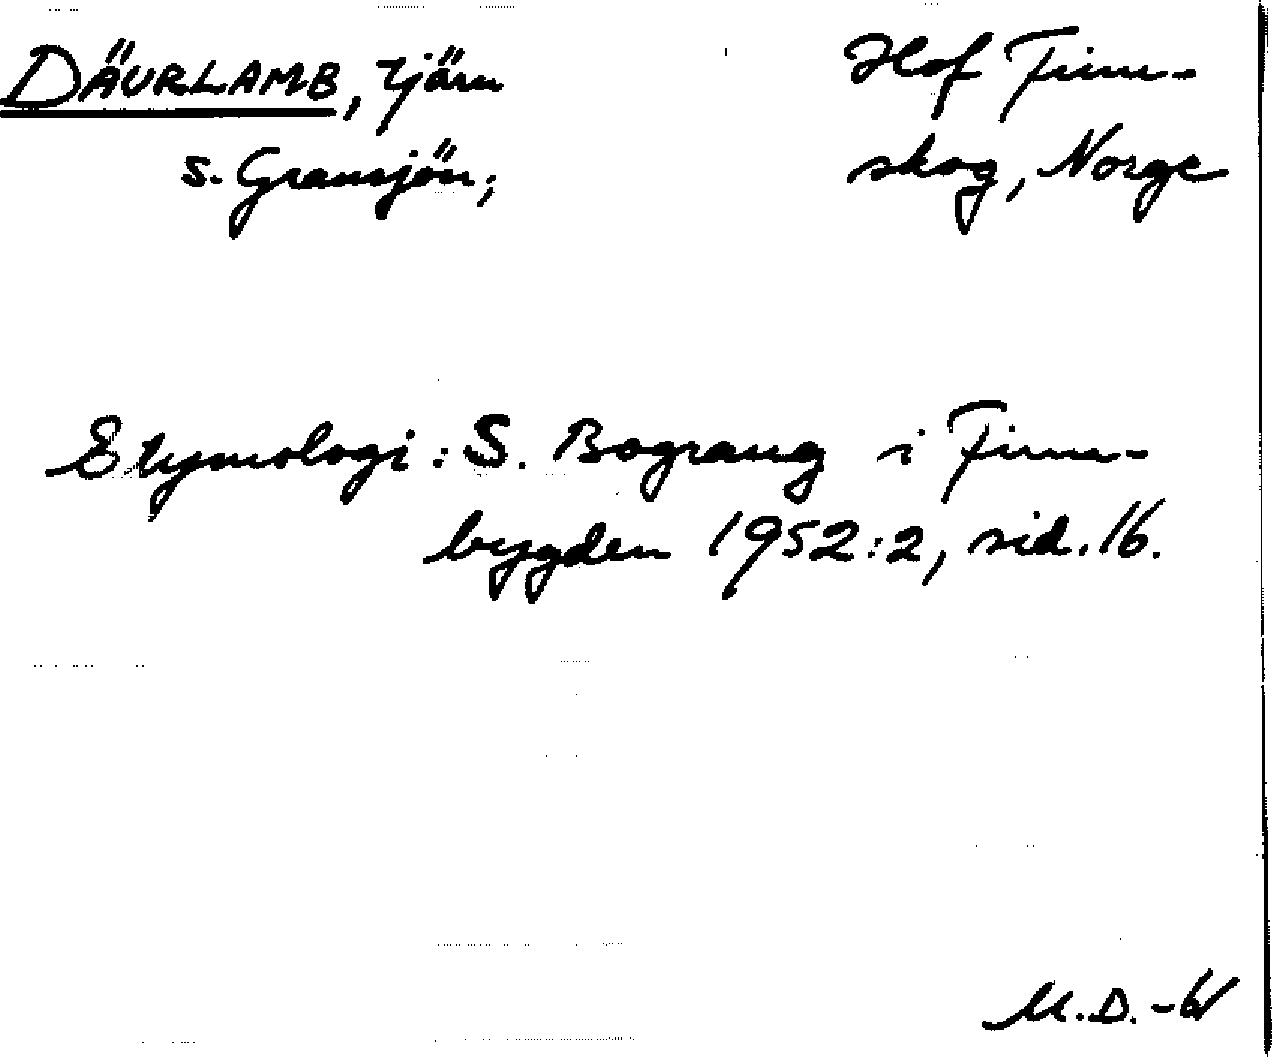 DÄURLAMB, tjärn
s. Gransjön;
Hof Finn-
skog, Norge
Etymologi: S. Bograng i Finn-
bygden 1952:2, sid. 16.
M.D. -61